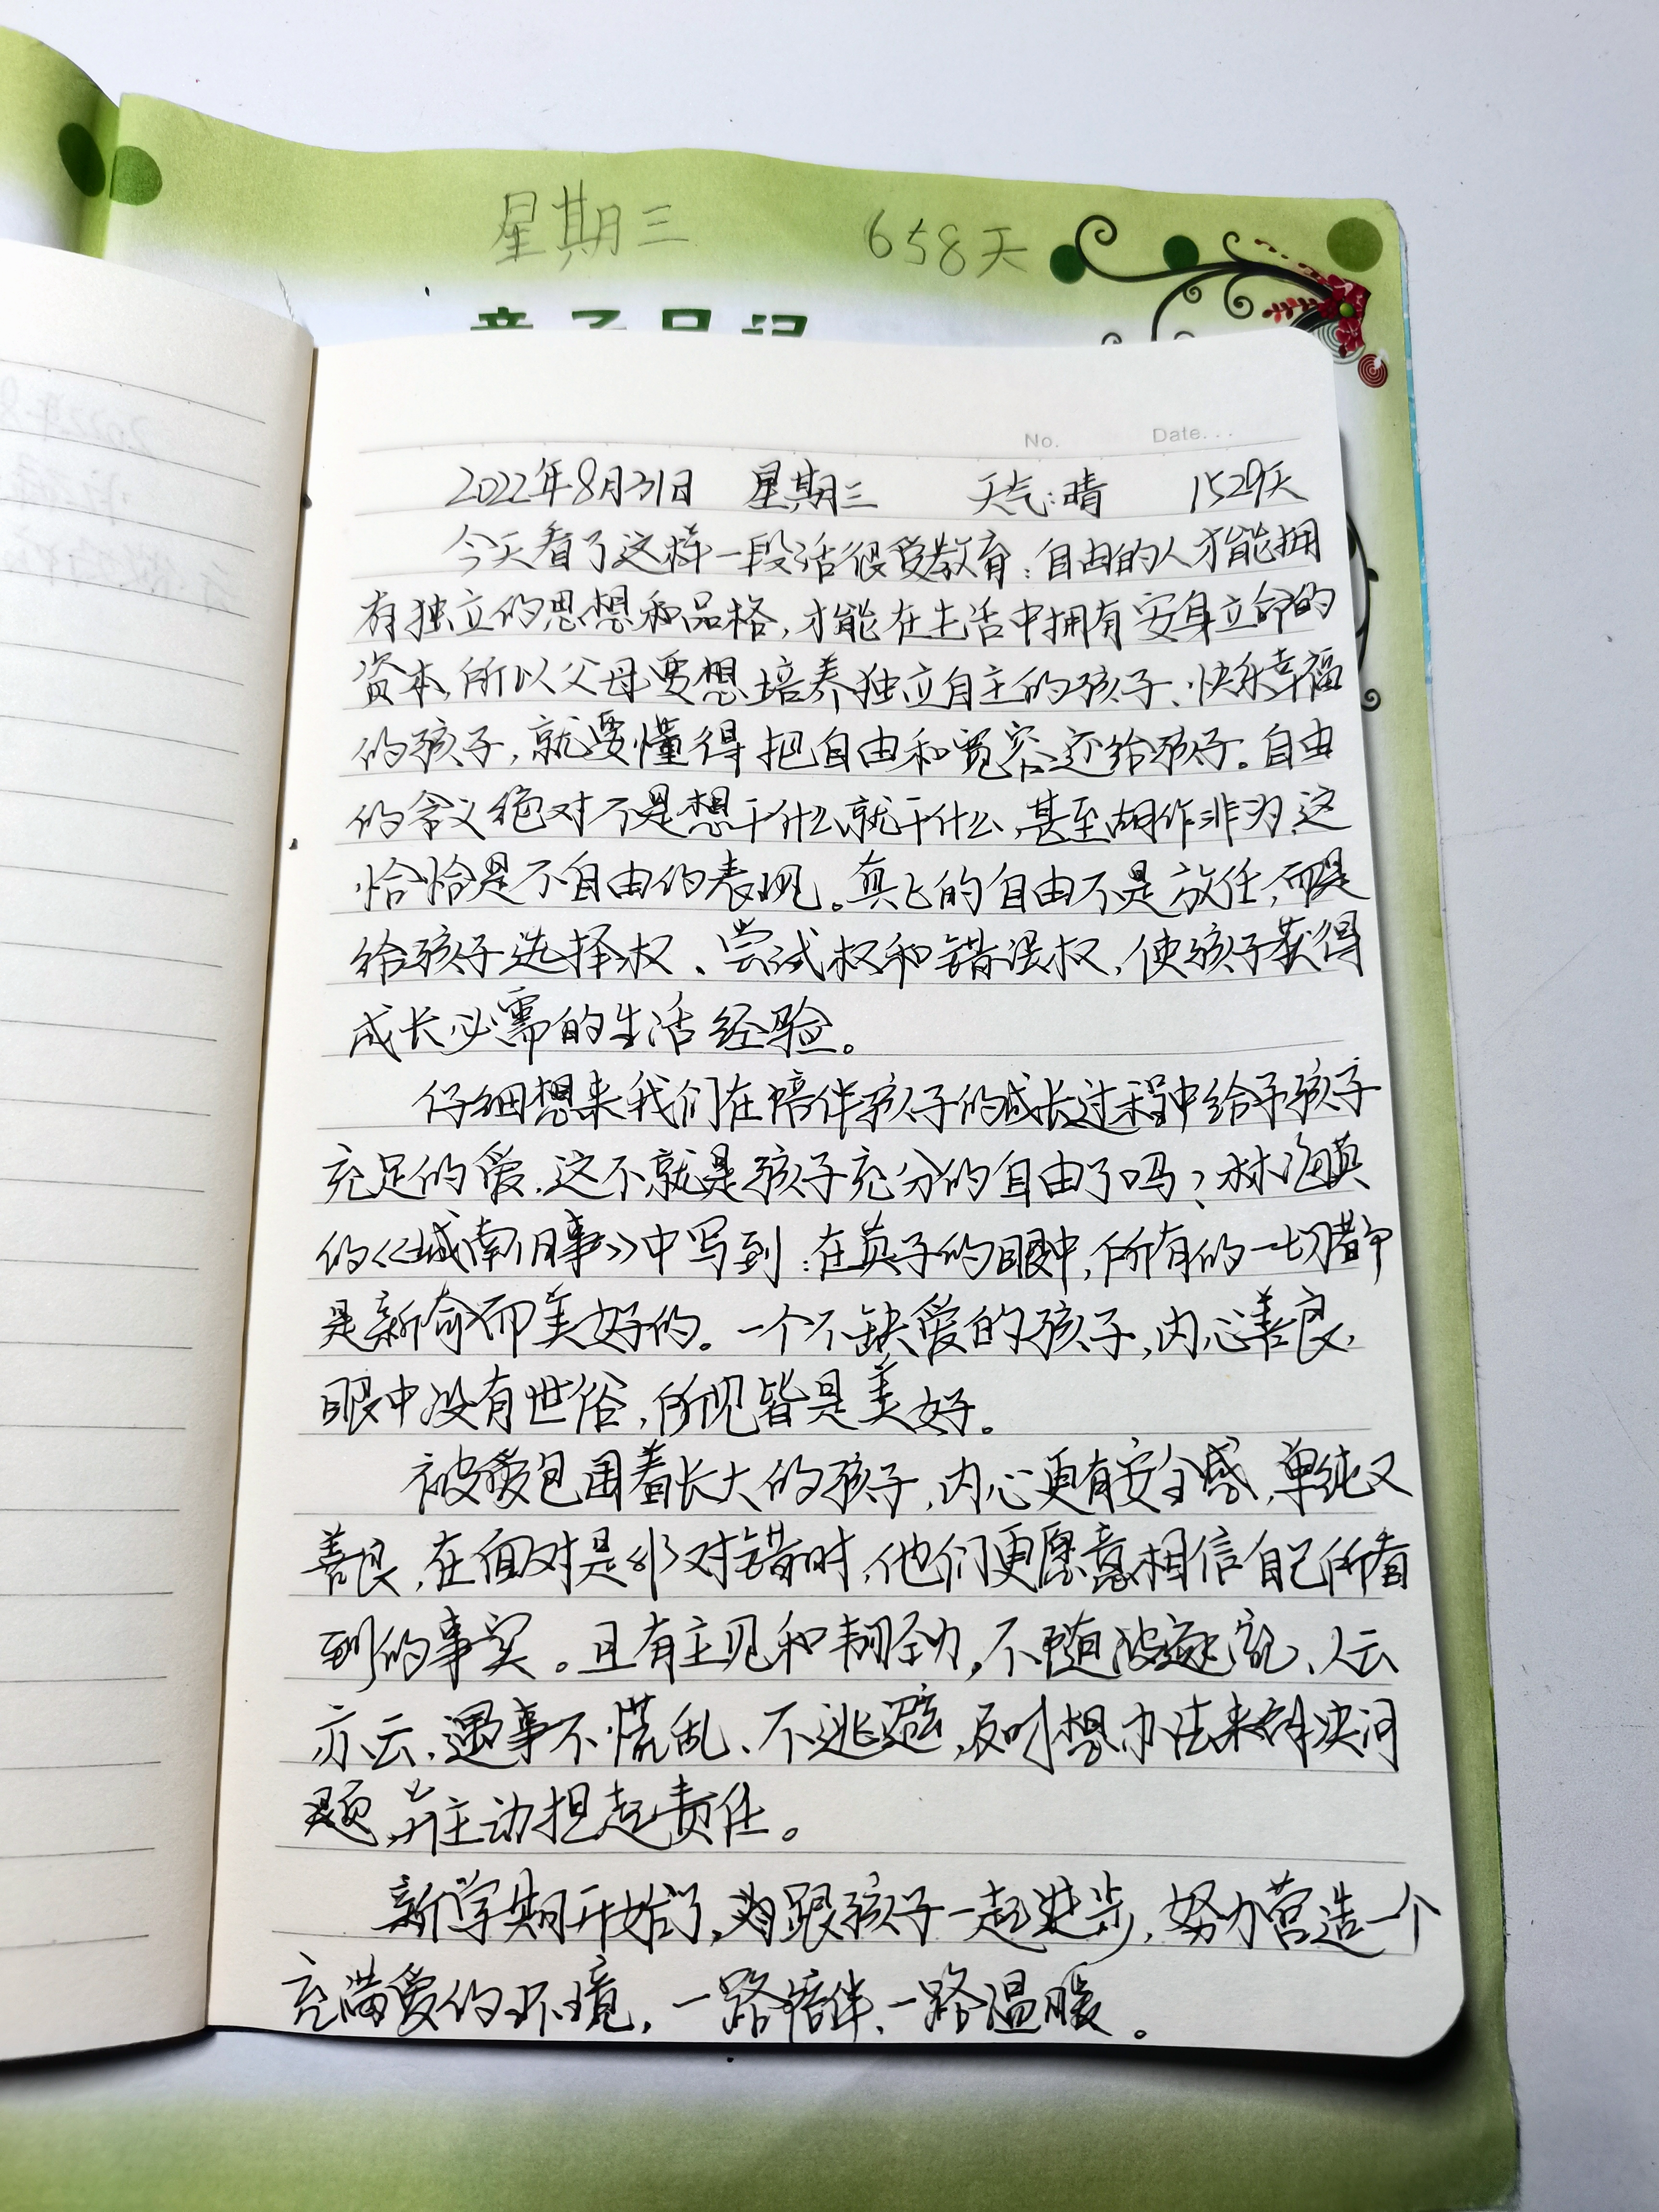 星期三 658天
亲子日记
No. Date. . .
2022年8月31日 星期三 天气:晴 1529天
今天看了这样一段话很受教育:自由的人才能拥
有独立的思想和品格,才能在生活中拥有安身立命的
资本,所以父母要想培养独立自主的孩子、快乐幸福
的孩子,就要懂得把自由和宽容还给孩子。自由
的含义绝对不是想干什么就干什么,甚至胡作非为,这
恰恰是不自由的表现。真正的自由不是放任,而是
给孩子选择权、尝试权和错误权,使孩子获得
成长必需的生活经验。
仔细想来我们在陪伴孩子的成长过程中给予孩子
充足的爱,这不就是孩子充分的自由了吗?林海英
的《城南旧事》中写到:在英子的眼中,所有的一切都
是新奇而美好的。一个不缺爱的孩子,内心善良,
眼中没有世俗,所见皆是美好。
被爱包围着长大的孩子,内心更有安全感,单纯又
善良,在面对是非对错时,他们更愿意相信自己所看
到的事实。且有主见和韧劲,不随波逐流、人云
亦云,遇事不慌乱、不逃避,及时想办法来解决问
题,并主动担起责任。
新学期开始了,为跟孩子一起进步,努力营造一个
充满爱的环境,一路陪伴、一路温暖。